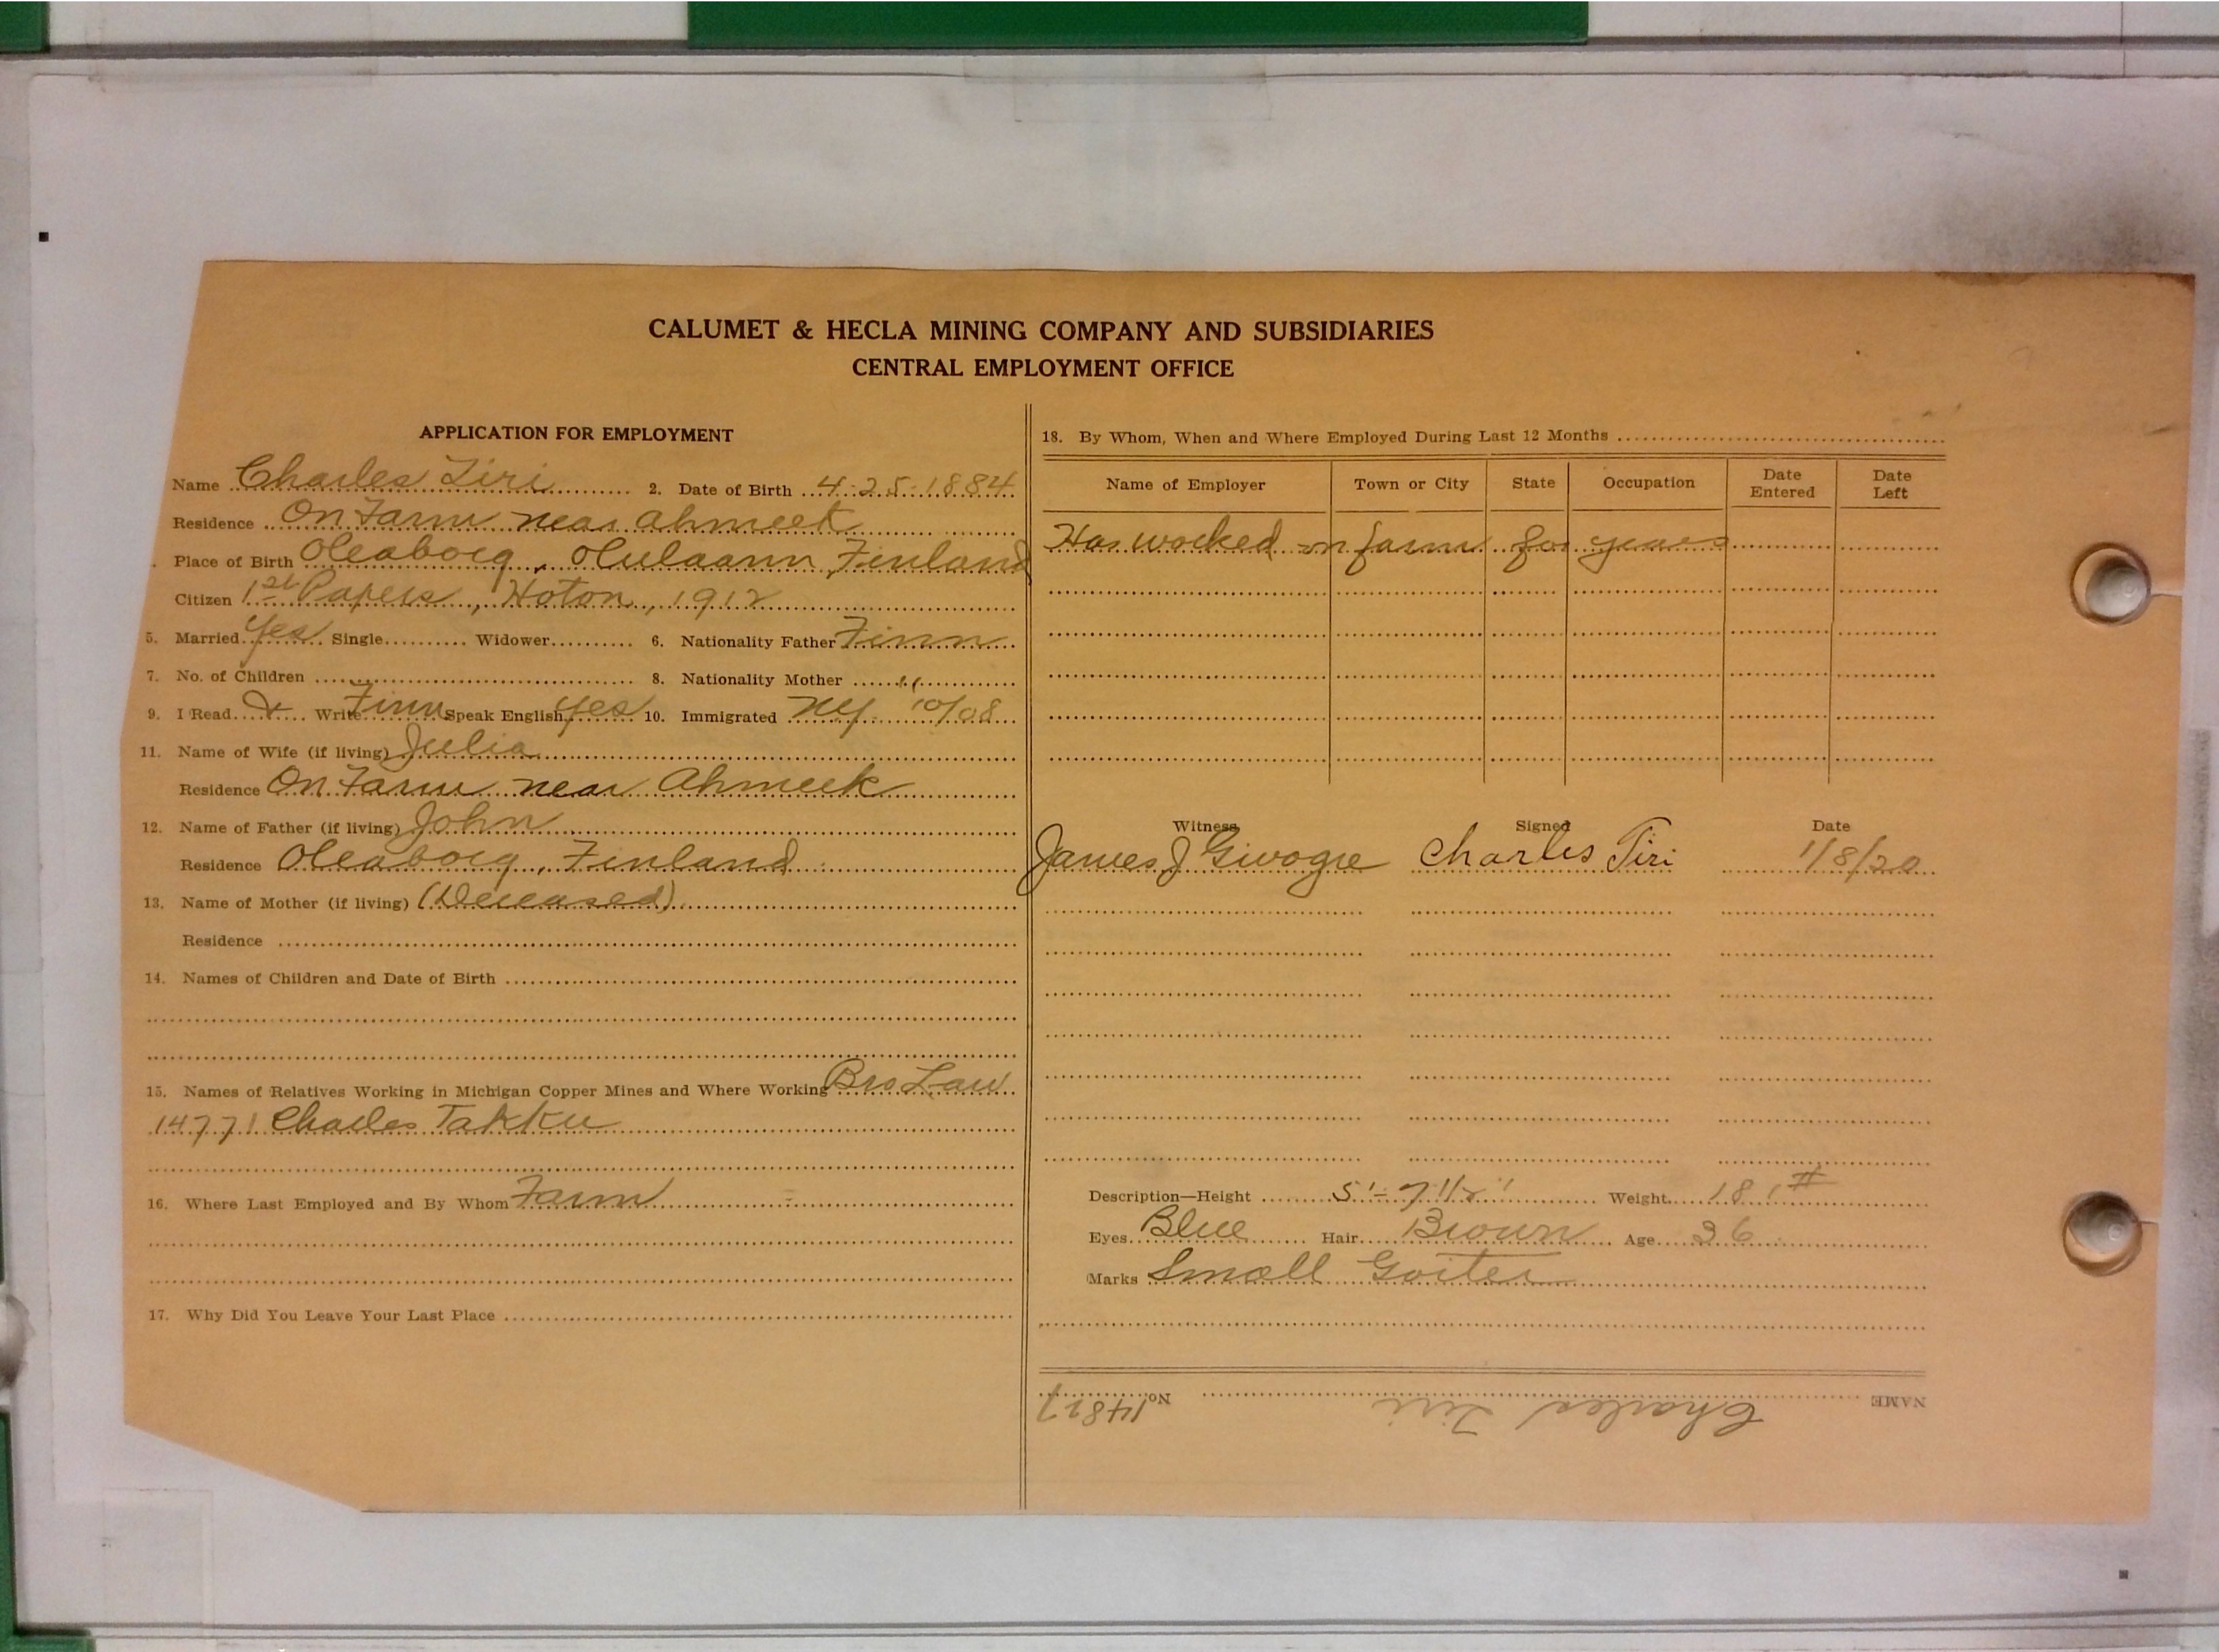 CALUMET & HECLA MINING COMPANY AND SUBSIDIARIES
CENTRAL EMPLOYMENT OFFICE
APPLICATION FOR EMPLOYMENT
Name Charles Tiri 2. Date of Birth 4-25-1884
Residence On Farm near Ahmeek
Place of Birth Oleaborg, Olulaann, Finland
Citizen 1st Papers, Hoton, 1912
5. Married Yes Single Widower 6. Nationality Father Finn
7. No. of Children 8. Nationality Mother "
9. I Read & Write Finn Speak English Yes 10. Immigrated NY 10/08
11. Name of Wife (if living) Julia
Residence On Farm near Ahmeek
12. Name of Father (if living) John
Residence Oleaborg, Finland
13. Name of Mother (if living) (Deceased)
Residence
14. Names of Children and Date of Birth
15. Names of Relatives Working in Michigan Copper Mines and Where Working Bro Law
14771 Charles Takku
16. Where Last Employed and By Whom Farm
17. Why Did You Leave Your Last Place
18. By Whom, When and Where Employed During Last 12 Months
Name of Employer Town or City State Occupation Date Entered Date Left
Has worked on farm for years
Witness Signed Date
James J Givogre Charles Tiri 1/8/20
Description—Height 5'-7 1/2" Weight 181#
Eyes Blue Hair Brown Age 36
Marks Small Goiter
NAME Charles Tiri No. 14827